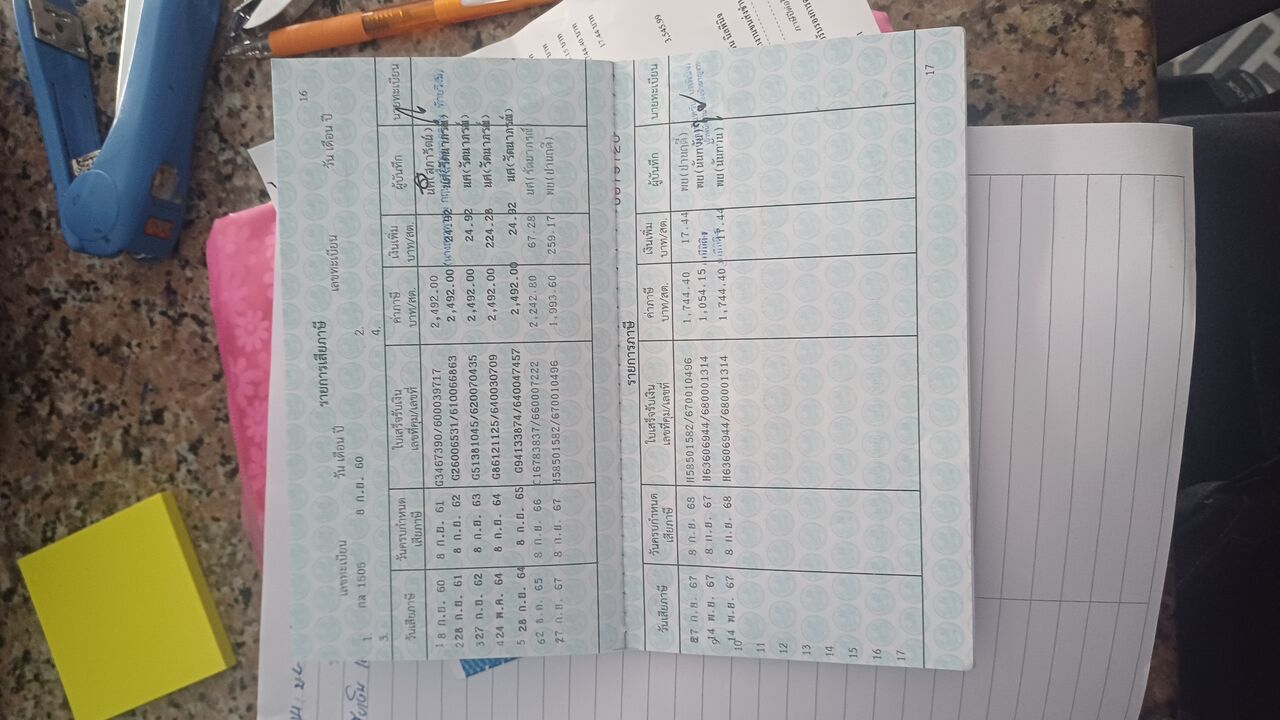 16
รายการเสียภาษี
เลขทะเบียน วัน เดือน ปี เลขทะเบียน วัน เดือน ปี
1. กล 1505 8 ก.ย. 60 2.
3. 4.
วันเสียภาษี วันครบกำหนดเสียภาษี ใบเสร็จรับเงิน เลขที่คุม/เลขที่ ค่าภาษี บาท/สต. เงินเพิ่ม บาท/สต. ผู้บันทึก นายทะเบียน
1 8 ก.ย. 60 8 ก.ย. 61 G3467390/600039717 2,492.00
2 28 ก.ย. 61 8 ก.ย. 62 G26006531/610066863 2,492.00 24.92 นศ(รัตนาภรณ์)
3 27 ก.ย. 62 8 ก.ย. 63 G51381045/620070435 2,492.00 24.92 นศ(รัตนาภรณ์)
4 24 พ.ค. 64 8 ก.ย. 64 G86121125/640030709 2,492.00 224.28 นศ(รัตนาภรณ์)
5 28 ก.ย. 64 8 ก.ย. 65 G94133874/640047457 2,492.00 24.92 นศ(รัตนาภรณ์)
6 2 ธ.ค. 65 8 ก.ย. 66 C16783837/660007222 2,242.80 67.28 นศ(รัตนาภรณ์)
7 27 ก.ย. 67 8 ก.ย. 67 H58501582/670010496 1,993.60 259.17 พย(ปานฤดี)
รายการภาษี
วันเสียภาษี วันครบกำหนดเสียภาษี ใบเสร็จรับเงิน เลขที่คุม/เลขที่ ค่าภาษี บาท/สต. เงินเพิ่ม บาท/สต. ผู้บันทึก นายทะเบียน
8 27 ก.ย. 67 8 ก.ย. 68 H58501582/670010496 1,744.40 17.44 พย(ปานฤดี)
9 14 พ.ย. 67 8 ก.ย. 67 H63606944/680001314 1,054.15
10 14 พ.ย. 67 8 ก.ย. 68 H63606944/680001314 1,744.40 17.44
11
12
13
14
15
16
17
17
3,545.99
17.44 บาท